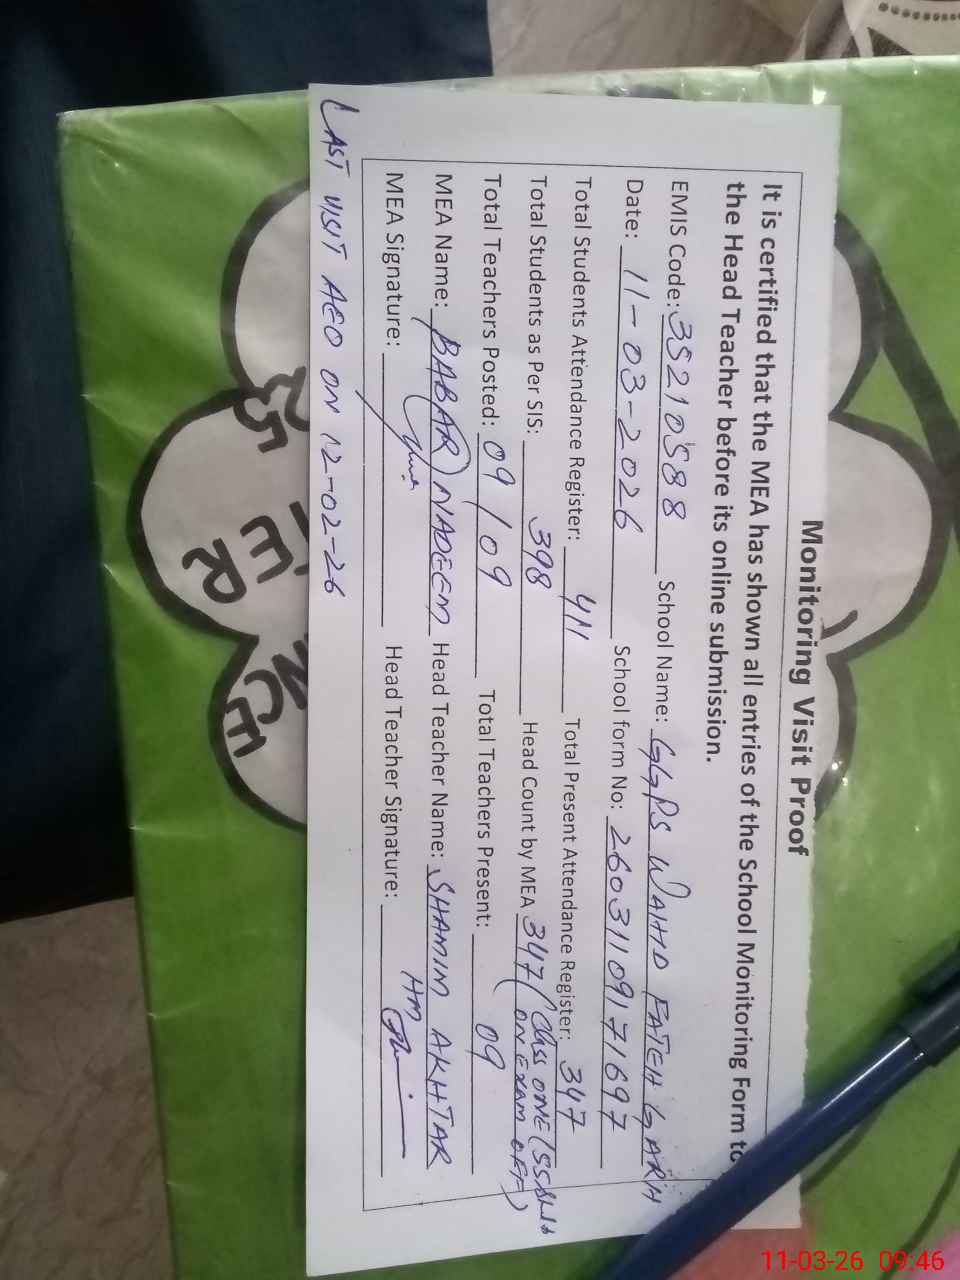 Monitoring Visit Proof
It is certified that the MEA has shown all entries of the School Monitoring Form to
the Head Teacher before its online submission.
EMIS Code: 35210588 School Name: GGPS WAHID FATEH GARH
Date: 11-03-2026 School form No: 26031109171697
Total Students Attendance Register: 411 Total Present Attendance Register: 347
Total Students as Per SIS: 398 Head Count by MEA 347 (Class ONE (55
ON EXAM OFF)
Total Teachers Posted: 09/09 Total Teachers Present: 09
MEA Name: BABAR NADEEM Head Teacher Name: SHAMIM AKHTAR
MEA Signature: Head Teacher Signature: HM
LAST VISIT AEO ON 12-02-26
TER
11-03-26 09:46